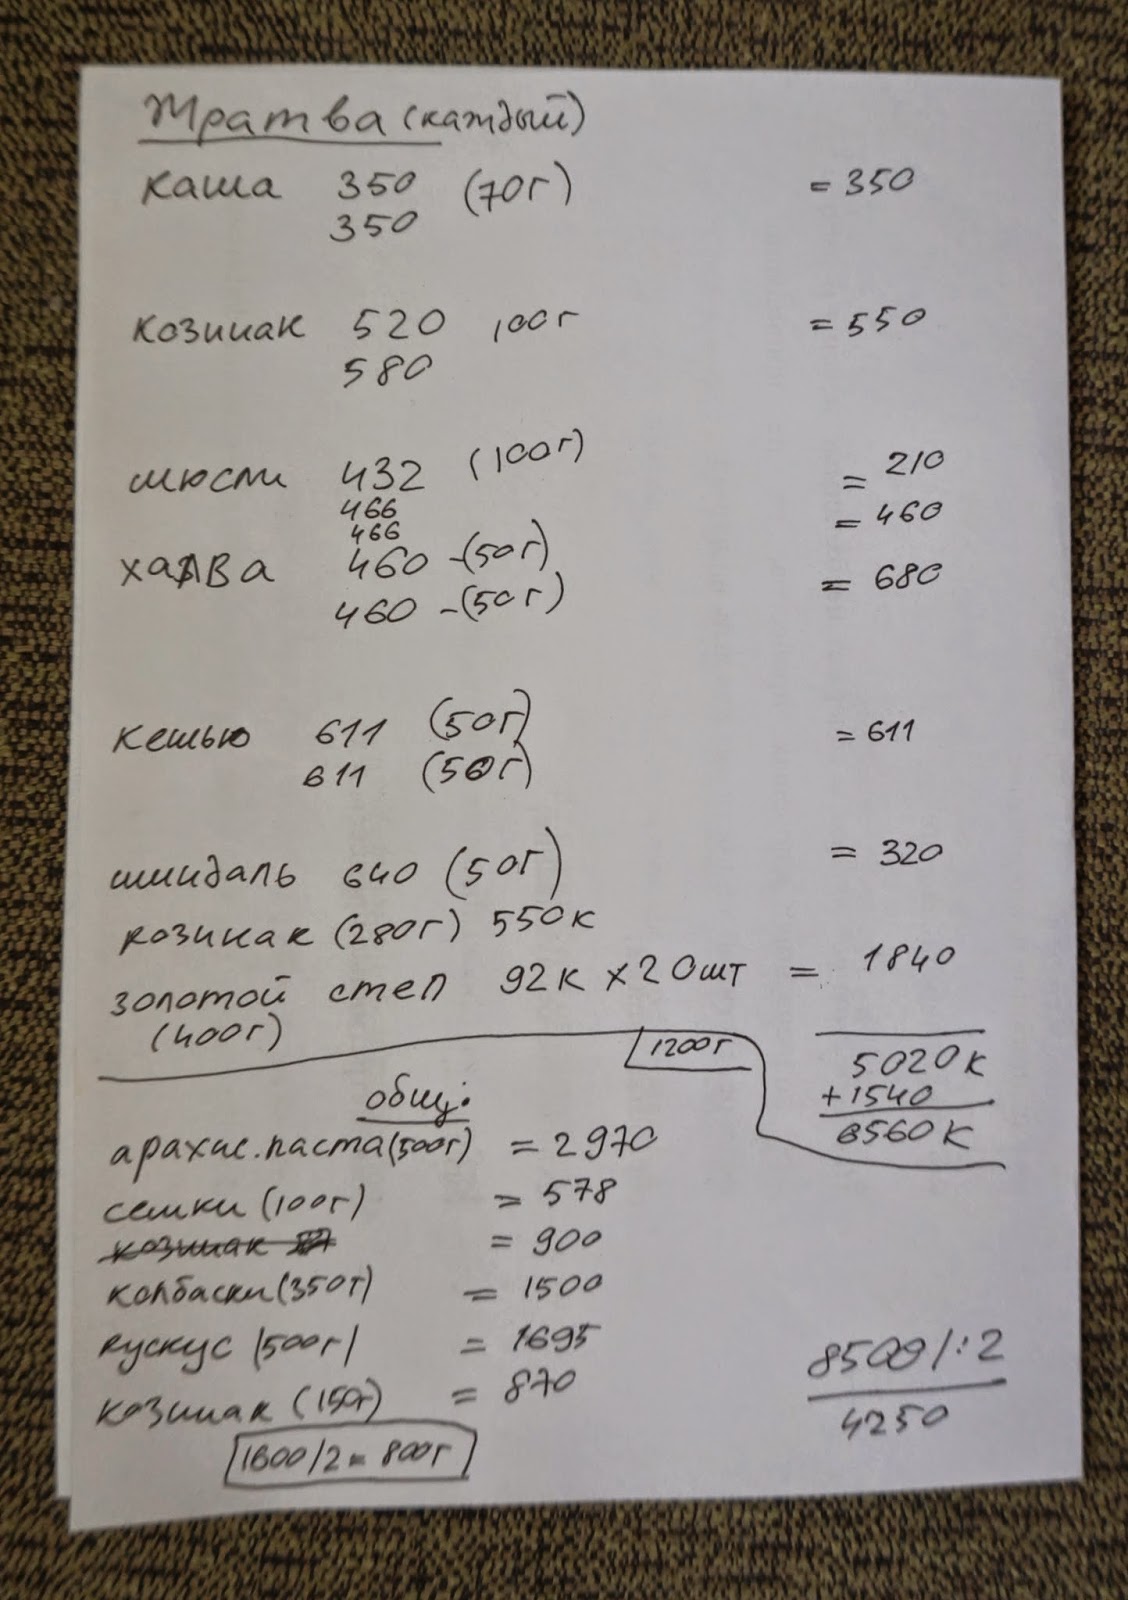 Жратва (каждый)
каша 350 (70г) = 350
350
козинак 520 100г = 550
580
мюсли 432 (100г) = 210
466 = 460
466
халва 460 -(50г) = 680
460 -(50г)
кешью 611 (50г) = 611
611 (50г)
миндаль 640 (50г) = 320
козинак (280г) 550к
золотой степ 92к х 20шт = 1840
(400г)
1200г
5020к
+1540
6560к
общ:
арахис.паста(500г) = 2970
семки (100г) = 578
козинак = 900
колбаски(350г) = 1500
кускус (500г) = 1695
козинак (150г) = 870
1600/2 = 800г
8500/:2
4250